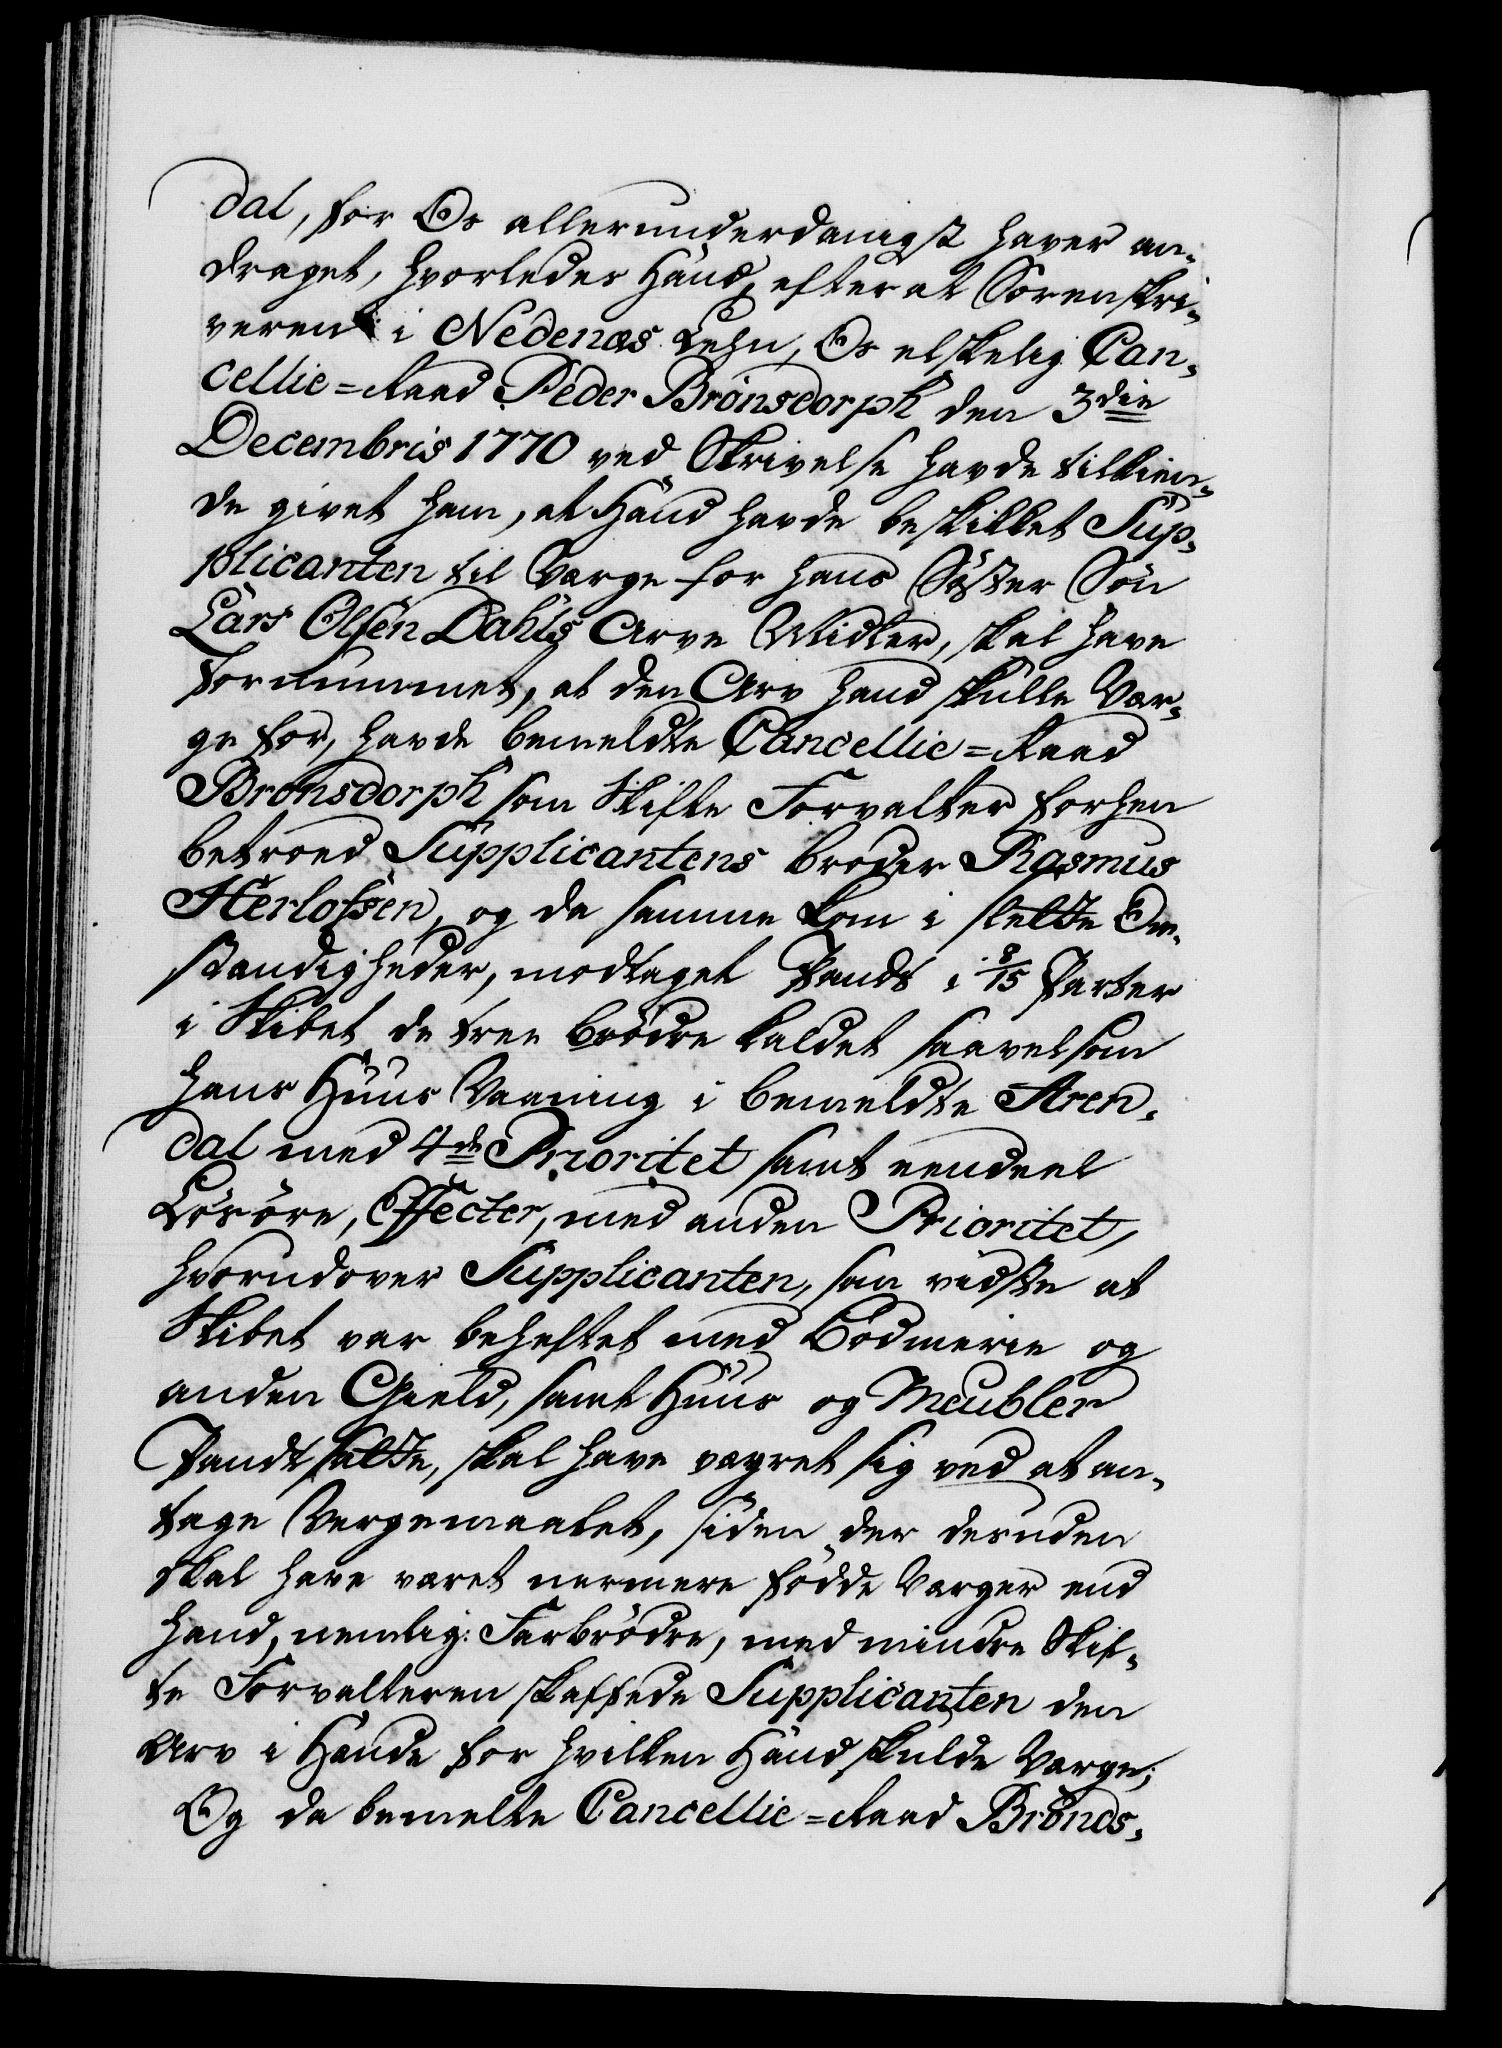 dal, for Os allerunderdanigst haver an-
draget, hvorledes Hand, efter at Sorenskri-
veren i Nedenæs Lehn, Os elskelig Can-
cellie=Raad Peder Brønsdorph den 3die
Decembris 1770 ved Skrivelse havde tilkien-
de givet ham, at Hand havde beskikket Sup-
plicanten til Værge for hans Søster Søn
Lars Olsen Dahls Arve Midler, skal have
fornummet, at den Arv Hand skulle Vær-
ge for, havde bemeldte Cancellie=Raad
Brønsdorph som Skifte Forvalter forhen
betroed Supplicantens broder Rasmus
Herlofsen, og da samme kom i slette Om-
stændigheder, modtaget Pandt i 8/15 Parter
i Skibet de tree brødre kaldet saavelsom
hans Huus Vaaning i bemeldte Aren-
dal med 4de Prioritet samt eendeel
Løsøre, Effecter, med anden Prioritet,
hvorudover Supplicanten, saa vidste at
Skibet var beheftet med Bodmerie og
anden Gield, samt Huus og Meubler
Pandtsatte, skal have vægret sig ved at an-
tage Værgemaalet, siden der desuden
skal have været nærmere fødde Værger end
Hand, nemlig: Farbrødre, med mindre Skif-
te Forvalteren skaffede Supplicanten den
Arv i Hænde for hvilken Hand skulde Værge;
Og da bemelte Cancellie=Raad Brønds-